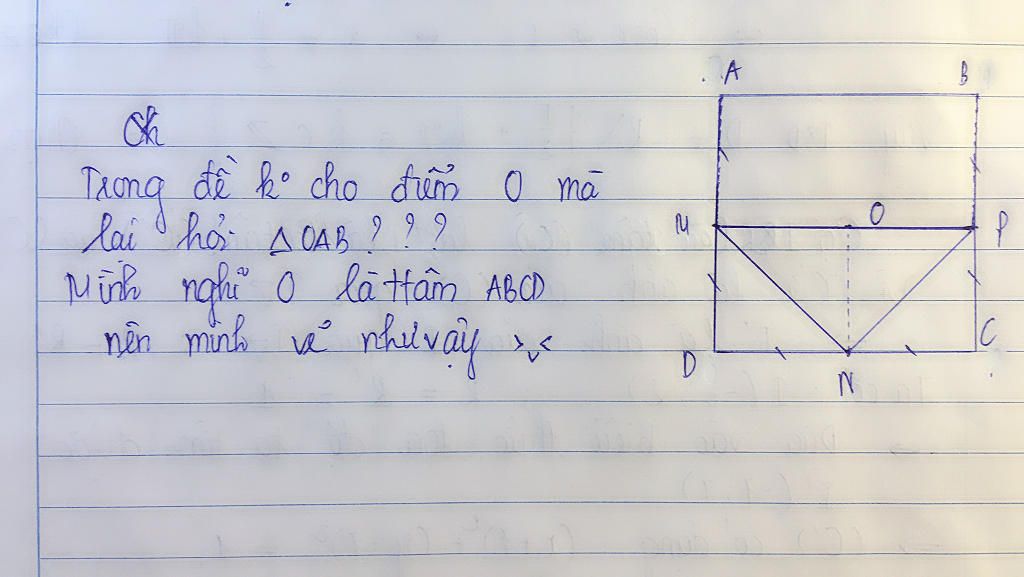 Ok
Trong đề ko cho điểm O mà
lại hỏi △OAB ? ? ?
Mình nghĩ O là ttâm ABCD
nên mình vẽ như vậy >.<
A B
M O P
D N C